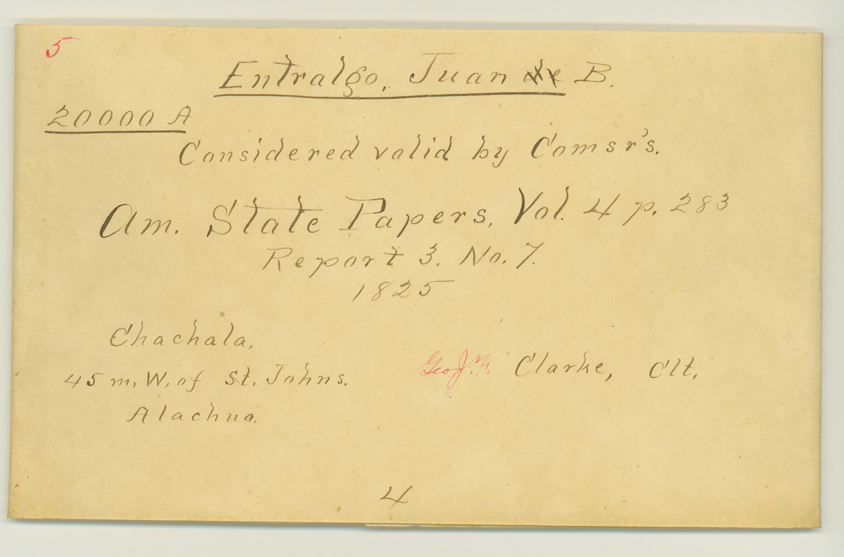 5
Entralgo, Juan de B.
20000 A
Considered valid by Comsr's.
Am. State Papers, Vol. 4 p. 283
Report 3. No. 7.
1825
Chachala.
45 m. W. of St. Johns.
Alachua.
Geo J. F. Clarke, Clt.
4